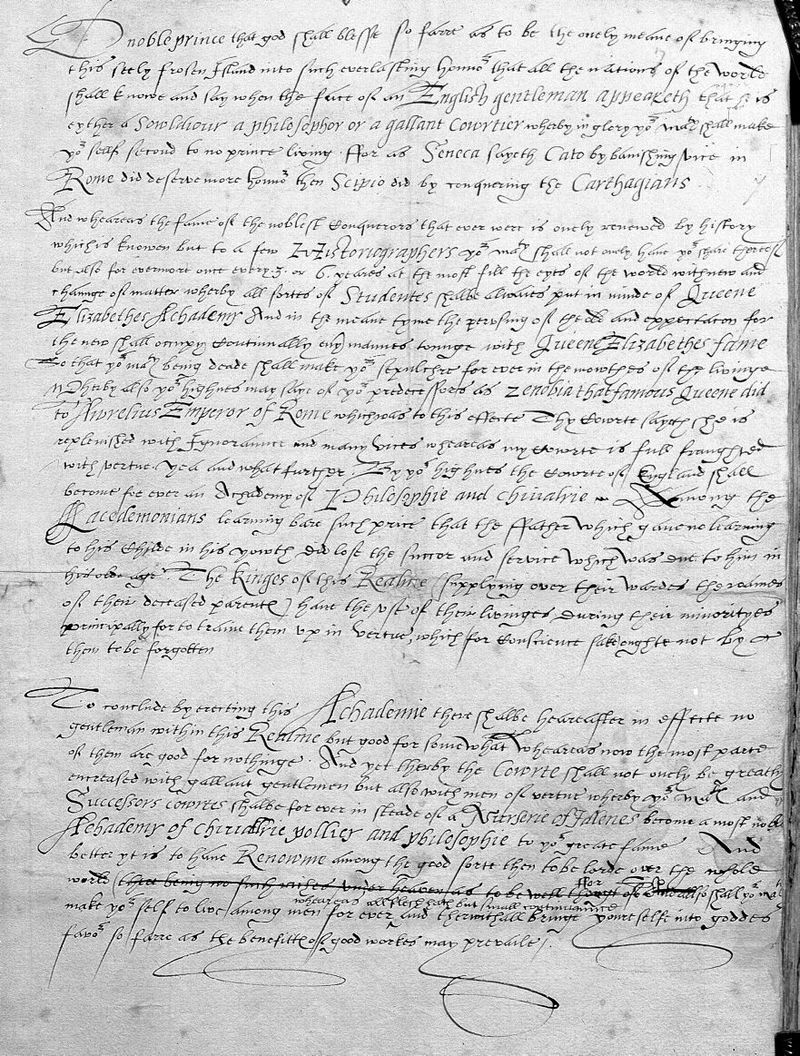 O noble prince that god shall blesse so farre as to be the onely meane of bringing
this seely frosen Island into such everlasting honnor that all the nations of the world
shall knowe and say when the face of an English gentleman appeareth that he is
eyther a Sowldiour a philosophor or a gallant Cowrtier wherby in glory yor Matie shall make
yor self second to no prince living. ffor as Seneca sayeth Cato by banishing vice in
Rome did deserve more honnor then Scipio did by conquering the Carthagians
And wheareas the fame of the noblest Conquerors that ever were is onely renewed by history
which is knowen but to a few Historiographers yor Matie shall not onely have yor share thereof
but also for evermore once every 5. or 6 yeares at the most fill the eyes of the world with new and
chainge of matter wherby all sortes of Studentes shalbe alwaies put in minde of Queene
Elizabethes Achademy And in the meane tyme the perusing of tholde and expectacon for
the new shall occupy Contiunally every mannes tounge with Queene Elizabethes fame
So that yor Matie being deade shall make yor sepulchre for ever in the mowthes of the livinge
Wherby also yor highnes may saye of yor predecessors as Zenobia that famous Queene did
to Awrelius Emperor of Rome which was to this effecte Thy Cowrte sayth she is
replenished with Ignoraunce and many vices wheareas my Cowrte is full fraughted
with vertue. yea and what further By yor highnes the Cowrte of England shall
become for ever an Achademy of Philosophie and chivalrie Among the
Lacedemonians learning bare such price that the ffather which gave no learning
to his Childe in his yowth did lose the succor and service which was due to him in
his olde age. The Kinges of this Realme (supplying over their wardes the roomes
of their deceased parentes) have the use of their livinges during their minorityes
principally for to traine them up in vertue, which for Conscience sake oughte not by
them to be forgotten
To conclude by erecting this Achademie there shalbe heareafter in effecte no
gentleman within this Realme but good for somewhat Wheareas now the most parte
of them are good for nothinge. And yet therby the Cowrte shall not onely be greatly
encreased with gallant gentlemen but also with men of vertue wherby yor Maties and
Successors cowrtes shalbe for ever in steade of a Nurserie of Idlenes become a most noble
Achademy of chivallrie pollicy and philosophie to yor great fame And
better yt is to have Renowme among the good sorte then to be lorde over the whole
world (there being no such riches under heaven as to be well thought of ffor so shall yor Matie
wheareas all flesh hath but small continuance
make yor self to live among men for ever and therwithall bringe yourselfe into goddes
favor so farre as the benefittes of good workes may prevaile.